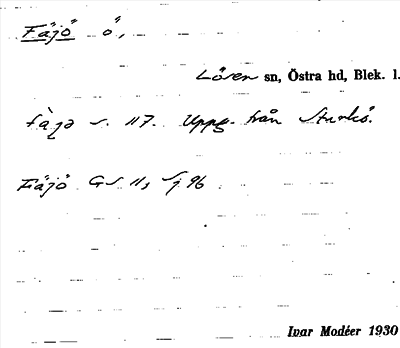 Fäjö ö,
Lösen sn, Östra hd, Blek. l.
s. 117. Uppg. från Sturkö.
Fäjö GS 11, Sj 96
Ivar Modéer 1930